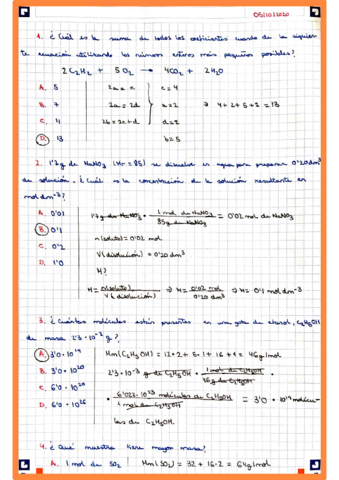 05/10/2020
1. ¿Cuál es la suma de todos los coeficientes cuando da la siguien-
te ecuación utilizando los números enteros más pequeños posibles?
2C₂H₂ + 5O₂ → 4CO₂ + 2H₂O
A. 5 2a = c c = 4
B. 7 2a = 2d a = 2 → 4+2+5+2 = 13
C. 11 2b = 2c+d d = 2
D. 13 b = 5
2. 1'7g de NaNO₃ (Mr = 85) se disuelve en agua para preparar 0'20dm³
de solución. ¿Cuál es la concentración de la solución resultante en
mol dm⁻³?
A. 0'01 1'7g de NaNO₃ · 1 mol de NaNO₃ / 85g de NaNO₃ = 0'02 mol de NaNO₃
B. 0'1 n(soluto) = 0'02 mol
C. 0'2 V(disolución) = 0'20 dm³
D. 1'0 M?
M = n(soluto) / V(disolución) ⇒ M = 0'02 mol / 0'20 dm³ ⇒ M = 0'1 mol dm⁻³
3. ¿Cuántas moléculas están presentes en una gota de etanol, C₂H₅OH
de masa 2'3·10⁻³ g?
A. 3'0·10¹⁹ Mm(C₂H₅OH) = 12·2 + 5·1 + 16 + 1 = 46g/mol
B. 3'0·10²⁰ 2'3·10⁻³ g de C₂H₅OH · 1 mol de C₂H₅OH / 46g de C₂H₅OH ·
C. 6'0·10²⁰ · 6'022·10²³ moléculas de C₂H₅OH / 1 mol de C₂H₅OH = 3'0·10¹⁹ molécu-
D. 6'0·10²⁶ las de C₂H₅OH.
4. ¿Qué muestra tiene mayor masa?
A. 1 mol de SO₂ Mm(SO₂) = 32 + 16·2 = 64g/mol